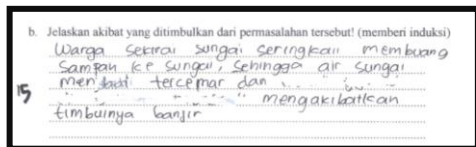 b. Jelaskan akibat yang ditimbulkan dari permasalahan tersebut! (memberi induksi)
Warga sekitar sungai seringkali membuang
Sampah ke sungai, Sehingga air sungai
menjadi tercemar dan
15
mengakibatkan
timbulnya banjir